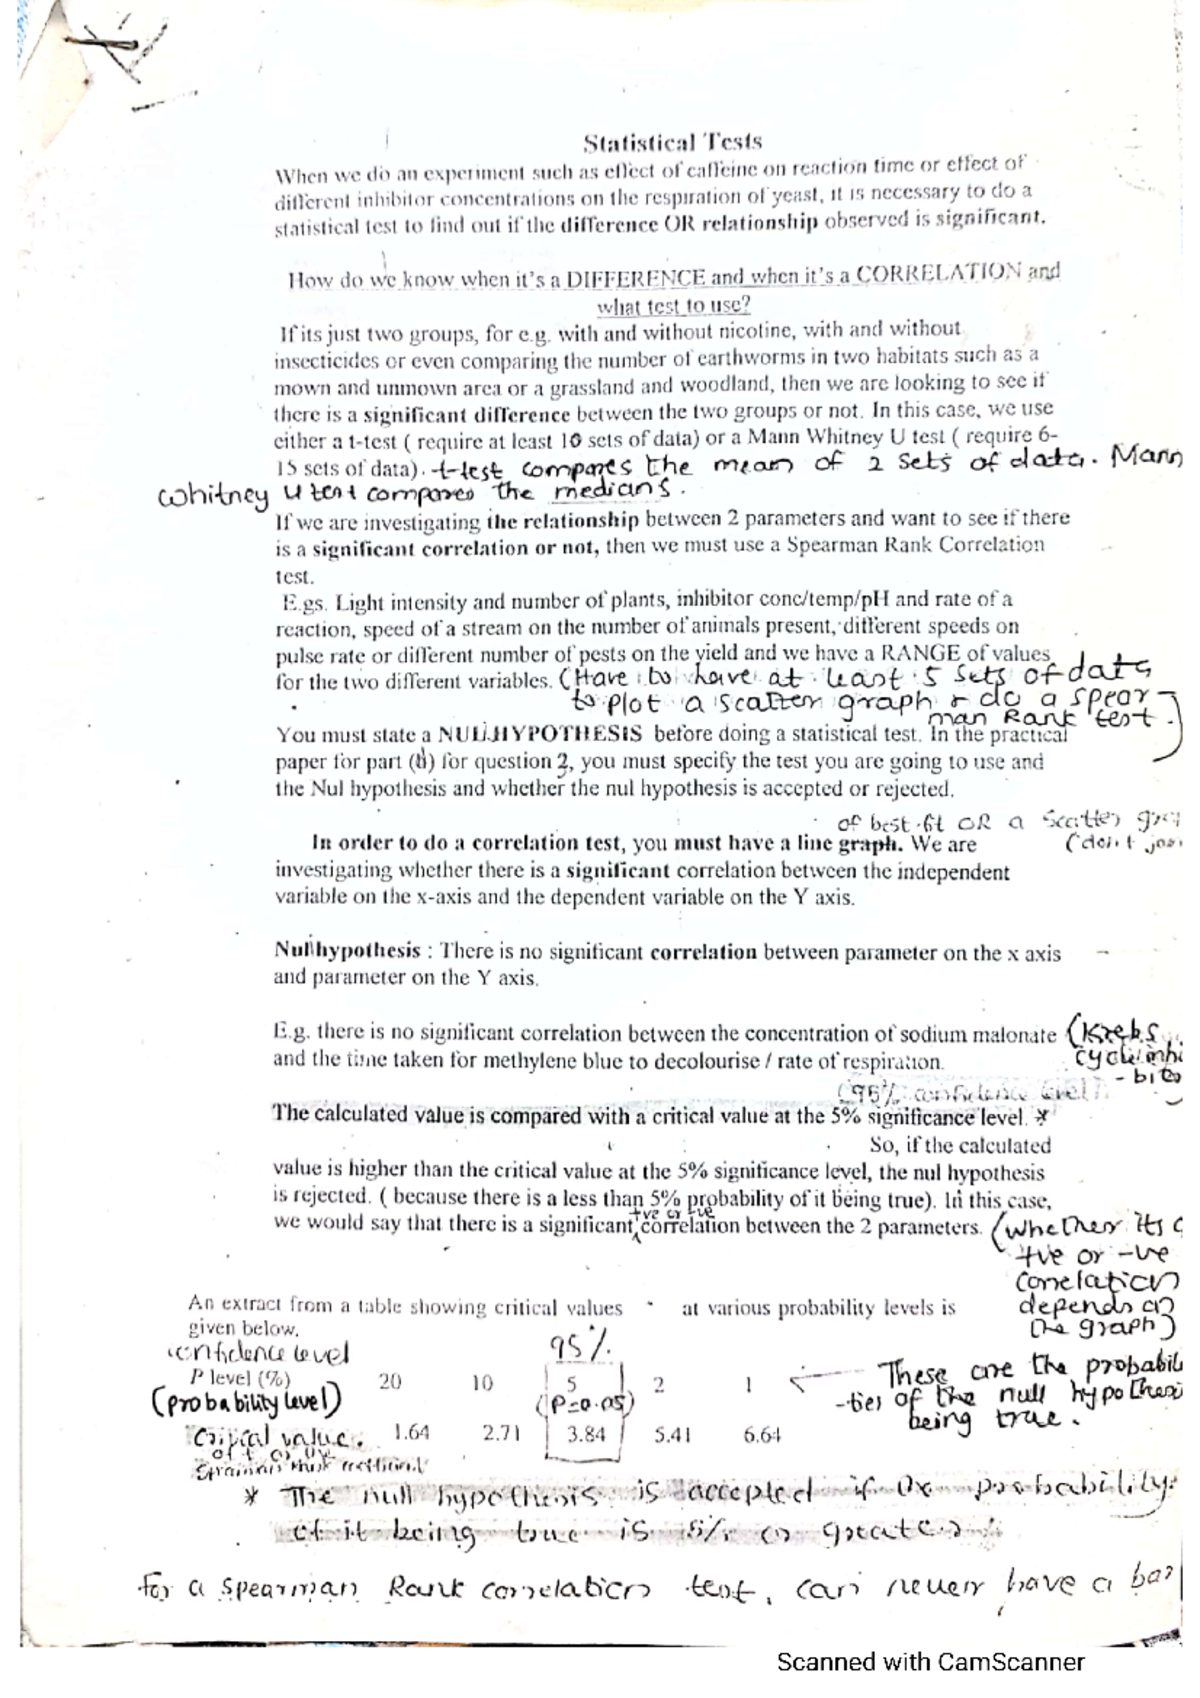 Statistical Tests
When we do an experiment such as effect of caffeine on reaction time or effect of
different inhibitor concentrations on the respiration of yeast, it is necessary to do a
statistical test to find out if the difference OR relationship observed is significant.
How do we know when it's a DIFFERENCE and when it's a CORRELATION and
what test to use?
If its just two groups, for e.g. with and without nicotine, with and without
insecticides or even comparing the number of earthworms in two habitats such as a
mown and unmown area or a grassland and woodland, then we are looking to see if
there is a significant difference between the two groups or not. In this case, we use
either a t-test ( require at least 10 sets of data) or a Mann Whitney U test ( require 6-
15 sets of data). t-test compares the mean of 2 sets of data. Mann
Whitney U test compares the medians.
If we are investigating the relationship between 2 parameters and want to see if there
is a significant correlation or not, then we must use a Spearman Rank Correlation
test.
E.gs. Light intensity and number of plants, inhibitor conc/temp/pH and rate of a
reaction, speed of a stream on the number of animals present, different speeds on
pulse rate or different number of pests on the yield and we have a RANGE of values
for the two different variables. (Have to have at least 5 sets of data
to plot a scatter graph & do a spear
man Rank test.)
You must state a NULL HYPOTHESIS before doing a statistical test. In the practical
paper for part (b) for question 2, you must specify the test you are going to use and
the Nul hypothesis and whether the nul hypothesis is accepted or rejected.
of best fit OR a scatter
In order to do a correlation test, you must have a line graph. We are (don't
investigating whether there is a significant correlation between the independent
variable on the x-axis and the dependent variable on the Y axis.
Null hypothesis : There is no significant correlation between parameter on the x axis
and parameter on the Y axis.
E.g. there is no significant correlation between the concentration of sodium malonate (Krebs
and the time taken for methylene blue to decolourise / rate of respiration. cycle inhi
-bito
(95% confidence level)
The calculated value is compared with a critical value at the 5% significance level. *
So, if the calculated
value is higher than the critical value at the 5% significance level, the nul hypothesis
is rejected. ( because there is a less than 5% probability of it being true). In this case,
+ve or -ve
we would say that there is a significant correlation between the 2 parameters. (whether its a
+ve or -ve
correlation
depends on
the graph)
An extract from a table showing critical values at various probability levels is
given below.
confidence level 95%
P level (%) 20 10 5 2 1
(probability level) (P=0.05)
These are the probabili
-ties of the null hypothesi
being true.
Critical value. 1.64 2.71 3.84 5.41 6.64
of t or U
* The null hypothesis is accepted if probability
of it being true is 5% or greater.
For a spearman Rank correlation test, can never have a bar
Scanned with CamScanner